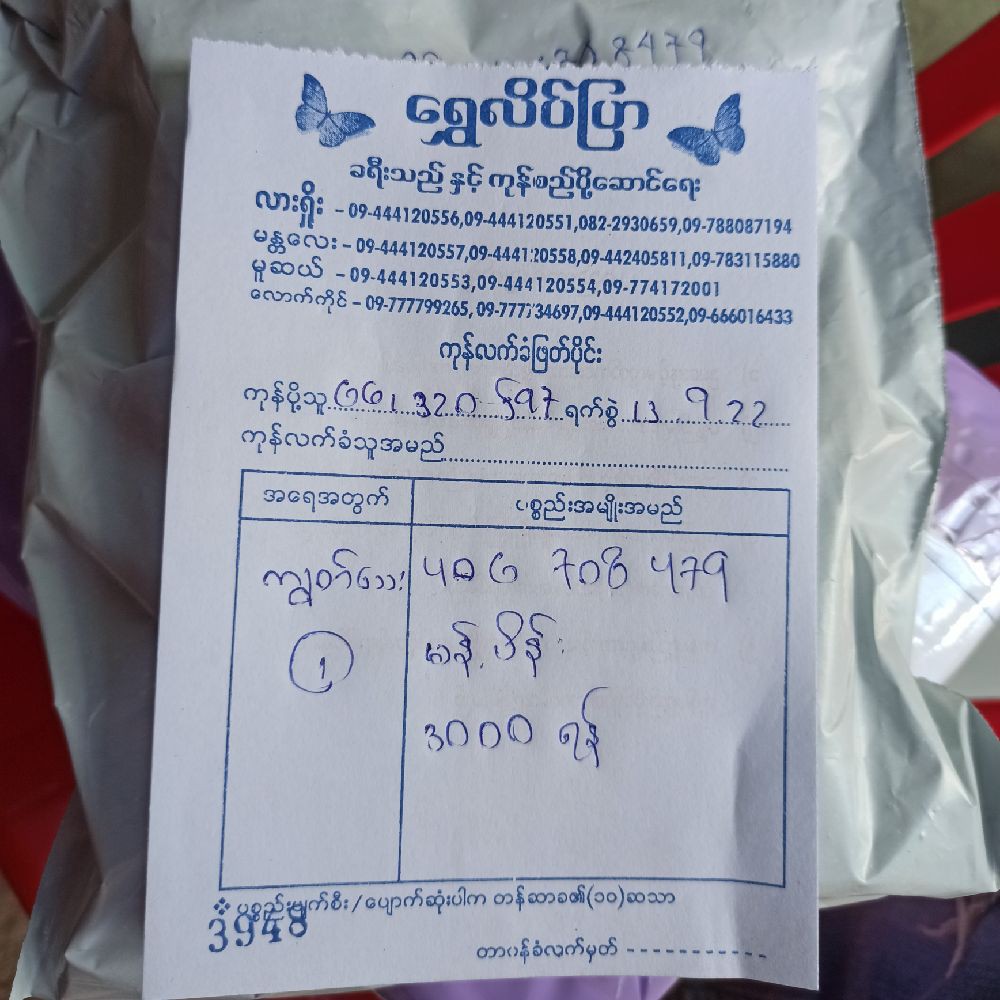 8479
ရွှေလိပ်ပြာ
ခရီးသည် နှင့် ကုန်စည်ပို့ဆောင်ရေး
လားရှိုး - 09-444120556,09-444120551,082-2930659,09-788087194
မန္တလေး - 09-444120557,09-444120558,09-442405811,09-783115880
မူဆယ် - 09-444120553,09-444120554,09-774172001
လောက်ကိုင် - 09-777799265, 09-777734697,09-444120552,09-666016433
ကုန်လက်ခံဖြတ်ပိုင်း
ကုန်ပို့သူ 661 320 597 ရက်စွဲ 13 9 22
ကုန်လက်ခံသူအမည်
အရေအတွက် ပစ္စည်းအမျိုးအမည်
406 708 479
1
3000 ရန်
❖ ပစ္စည်းပျက်စီး / ပျောက်ဆုံးပါက တန်ဆာခ၏(၁၀)ဆသာ
3948
တာဝန်ခံလက်မှတ် -----------